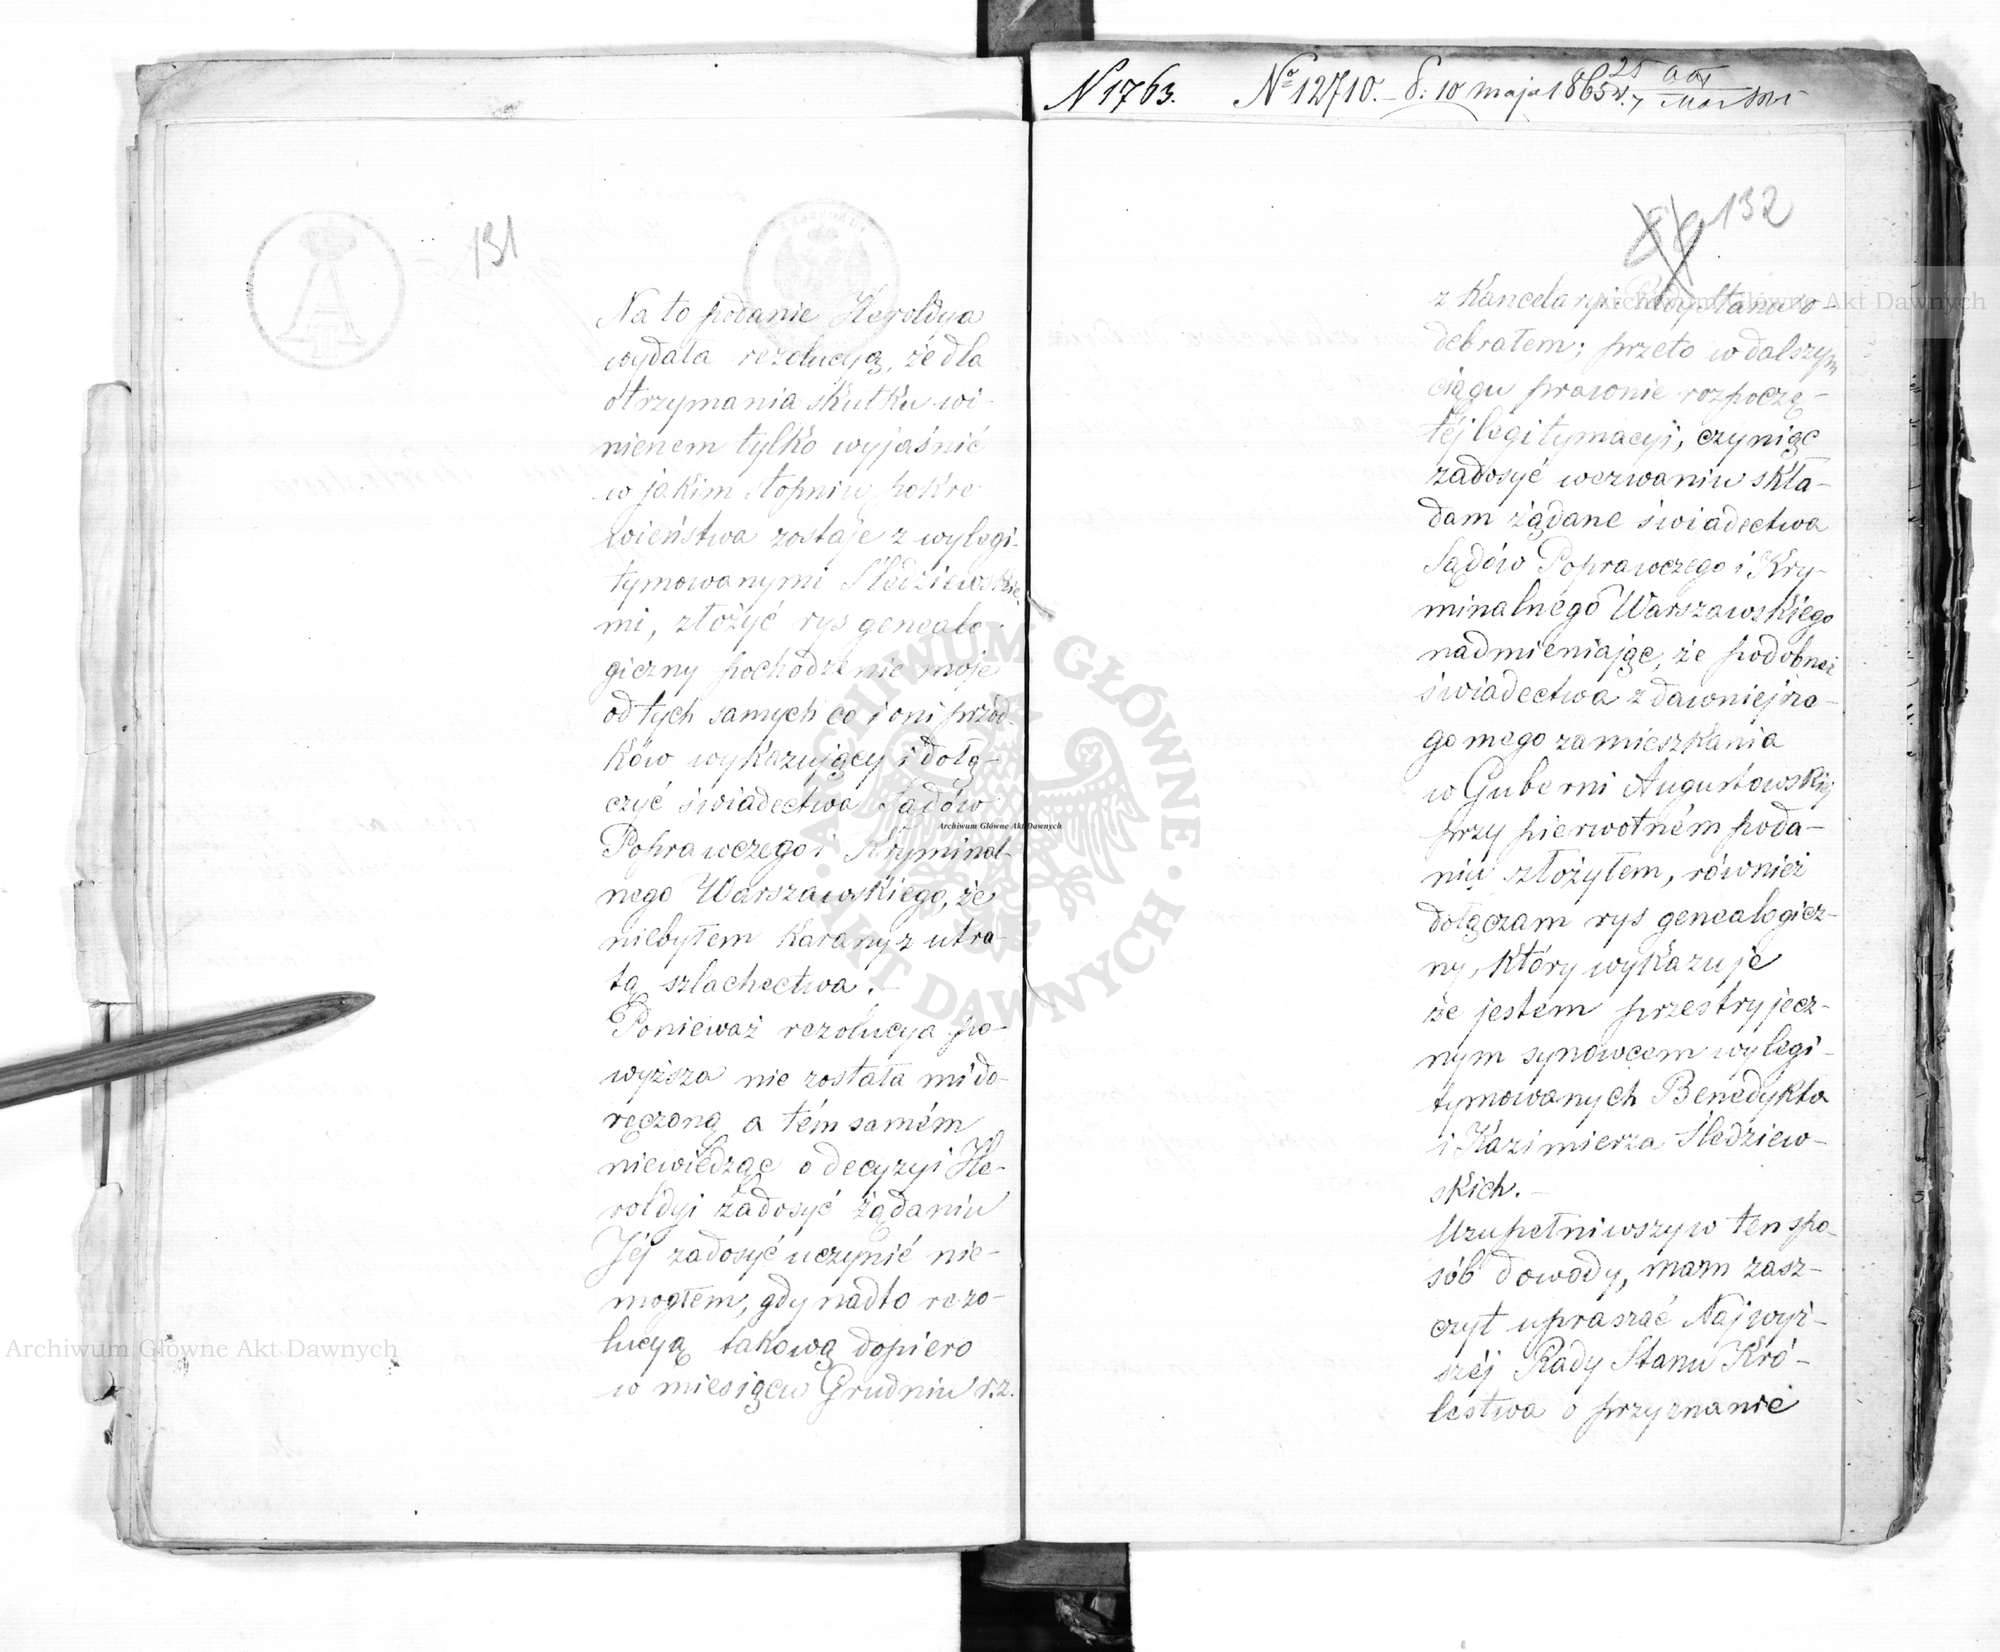 131
Na to podanie Heroldya
wydała rezolucyą, że dla
otrzymania skutku wi-
nienem tylko wyjaśnić
w jakim stopniu pokre-
wieństwa zostaję z wylegi-
tymowanymi Sledziewskie-
mi, złożyć rys genealo-
giczny pochodzenie moje
od tych samych co i oni przod-
ków wykazujący i dołą-
czyć świadectwa Sądów
Poprawczego i Kryminal-
nego Warszawskiego, że
niebyłem karany z utra-
tą szlachectwa.
Ponieważ rezolucya po-
wyższa nie została mi do-
ręczoną a tém samém
niewiedząc o decyzyi He-
roldyi zadosyć żądaniu
Jéj zadosyć uczynić nie-
mogłem, gdy nadto rezo-
lucyą takową dopiero
w miesiącu Grudniu r.z.
N 1763. No 12710. d: 10 maja 1865 r.
132
z Kancelaryi Rady Stanu o-
debrałem; przeto w dalszym
ciągu prawnie rozpoczę-
téj legitymacyi, czyniąc
zadosyć wezwaniu skła-
dam żądane świadectwa
Sądów Poprawczego i Kry-
minalnego Warszawskiego
nadmieniając, że podobneż
świadectwa z dawniejsze-
go mego zamieszkania
w Guberni Augustowskiéj
przy pierwotném poda-
niu złożyłem, również
dołączam rys genealogicz-
ny, który wykazuje
że jestem przestryjecz-
nym synowcem wylegi-
tymowanych Benedykta
i Kazimierza Sledziew-
skich.-
Uzupełniwszy w ten spo-
sób dowody, mam zasz-
czyt upraszać Najwyż-
széj Rady Stanu Kró-
lestwa o przyznanie
Archiwum Główne Akt Dawnych
Archiwum Główne Akt Dawnych
Archiwum Główne Akt Dawnych
ARCHIWUM GŁÓWNE AKT DAWNYCH